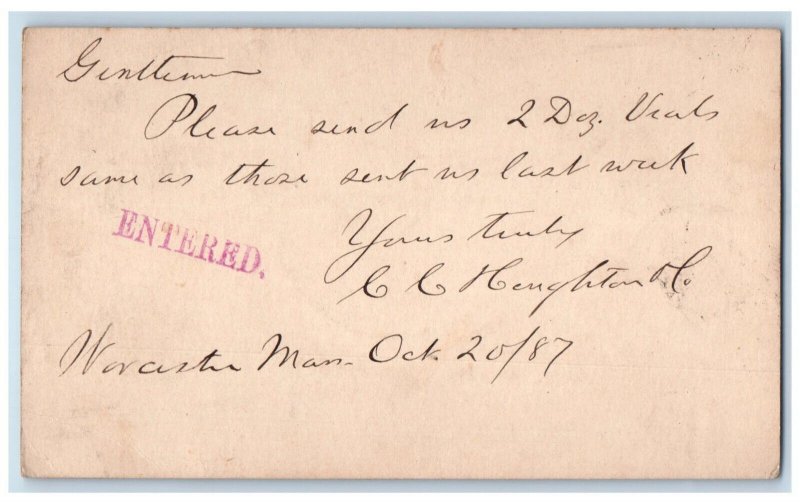 Gentlemen
Please send us 2 Doz. Vials
same as those sent us last week
Yours truly
ENTERED.
C C Houghton & Co
Worcester Mass. Oct. 20/87